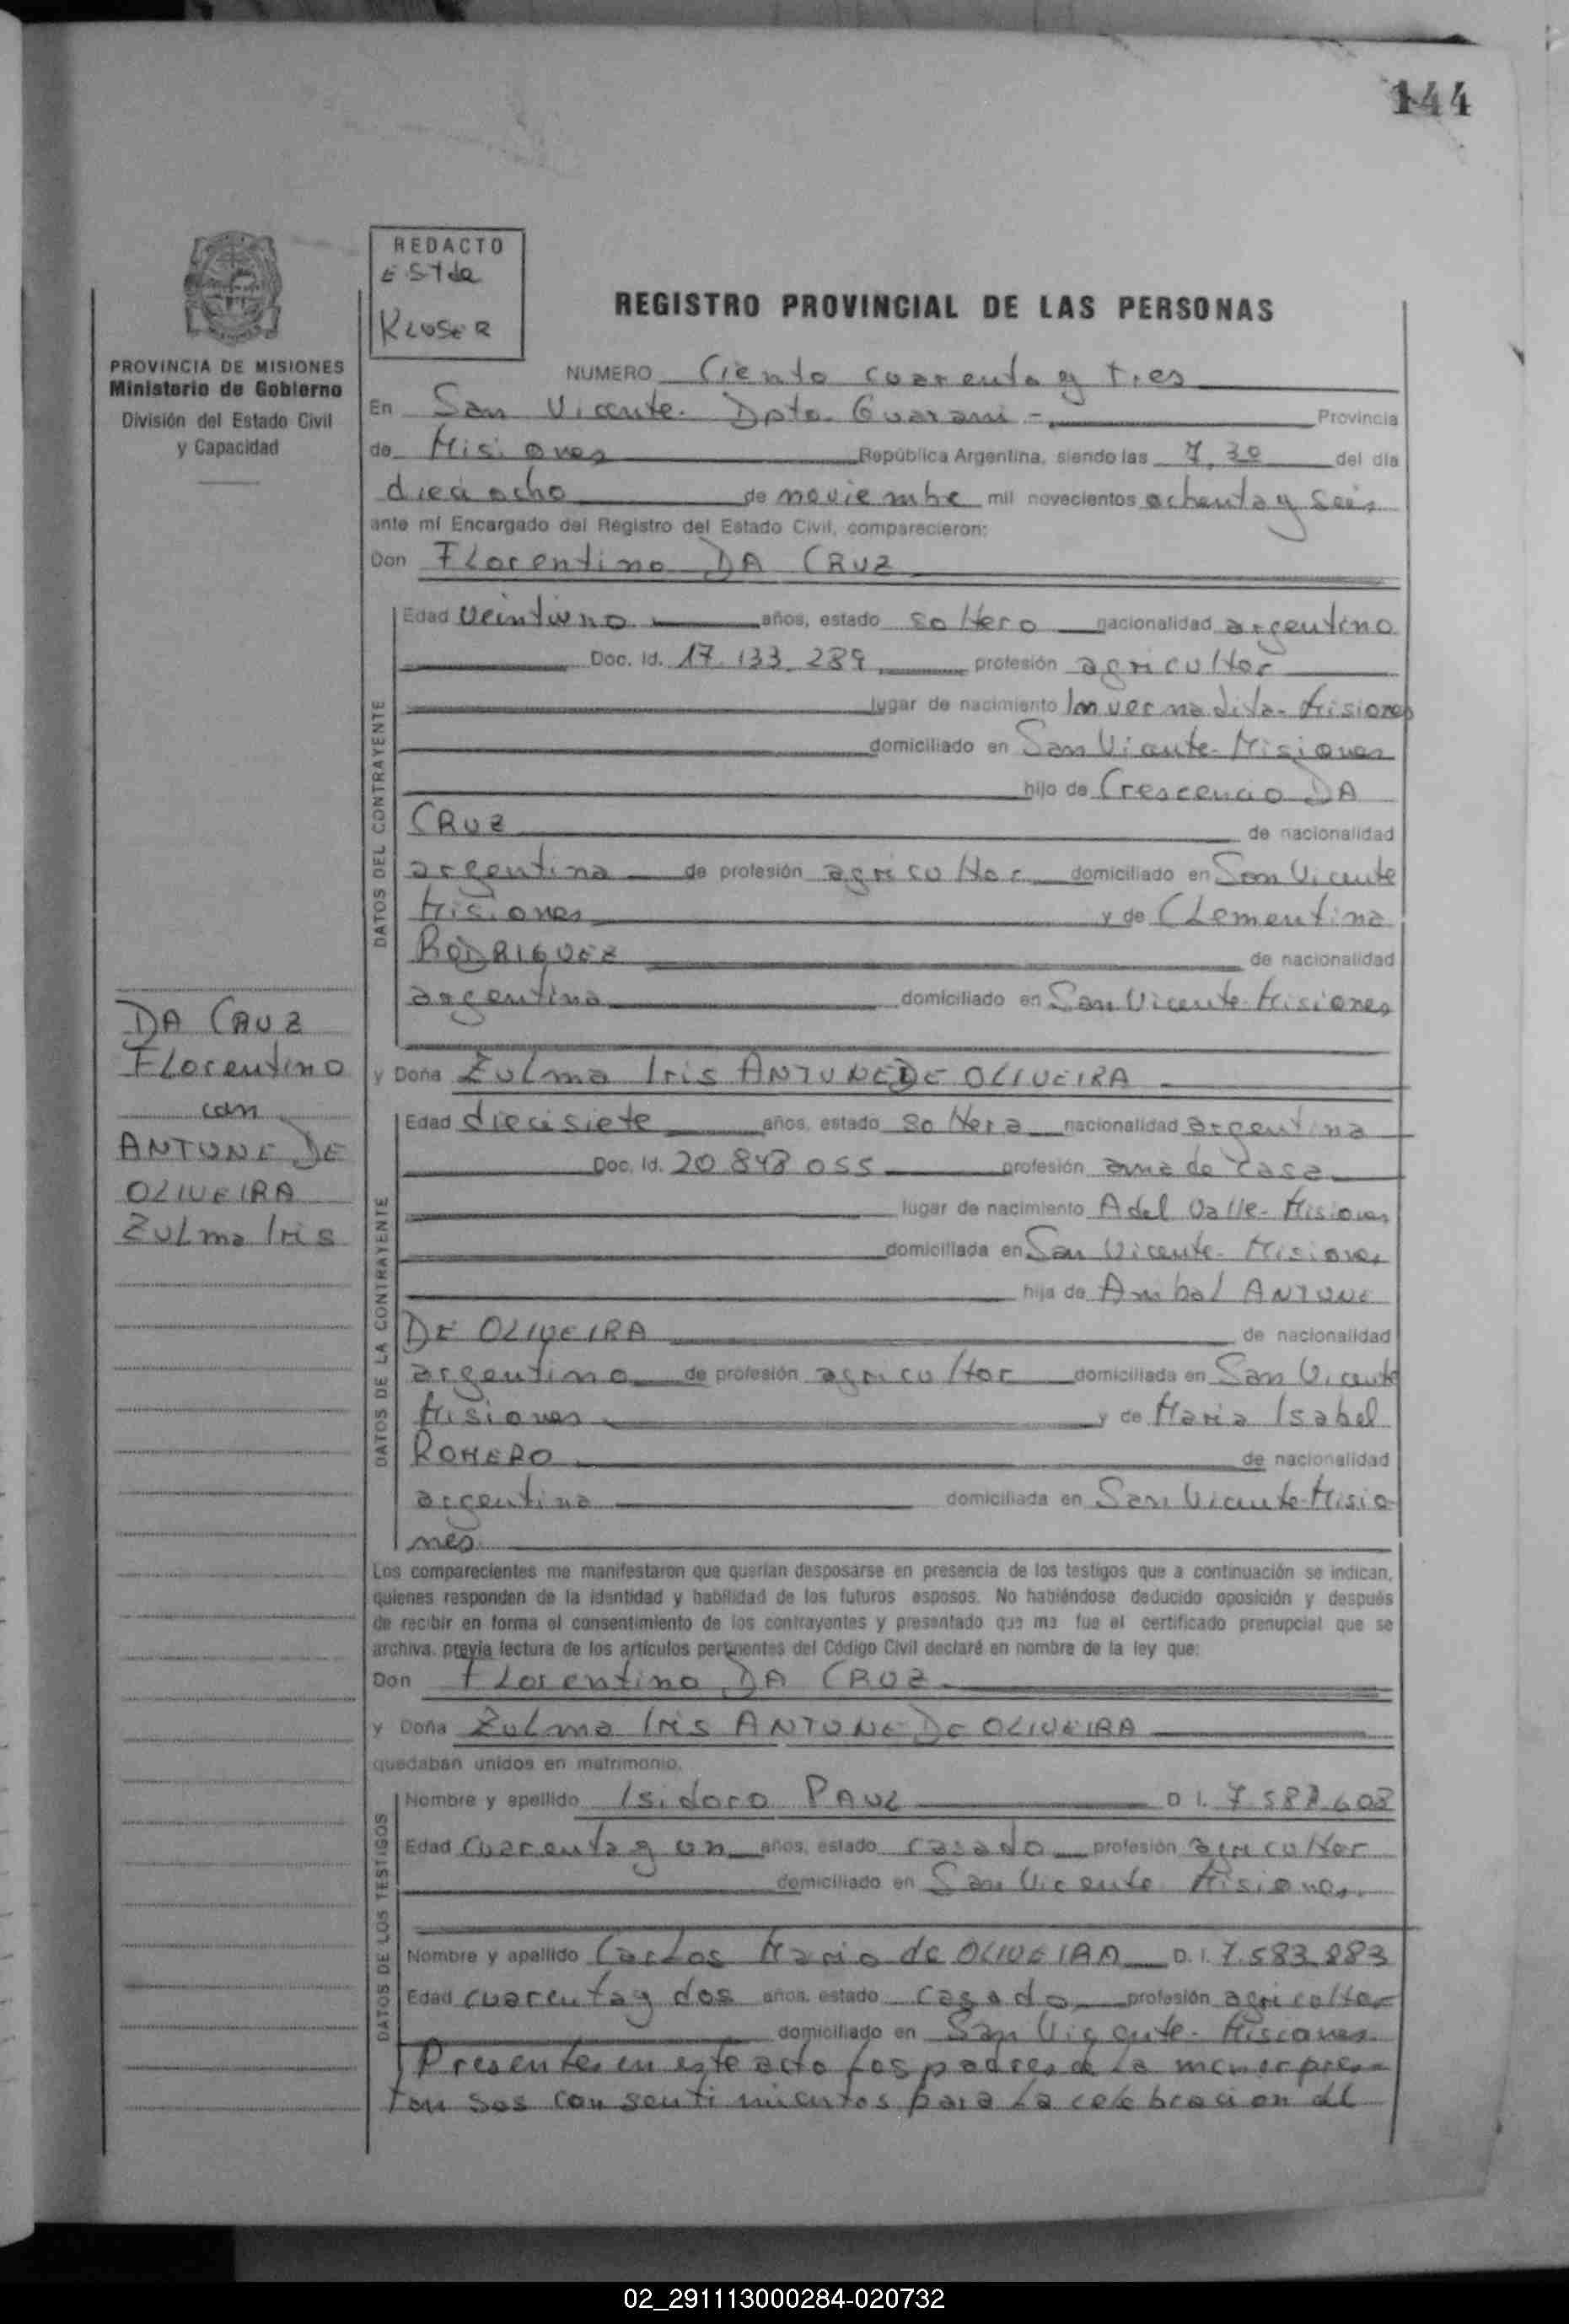 144
REDACTO
KLUSER
REGISTRO PROVINCIAL DE LAS PERSONAS
PROVINCIA DE MISIONES
Ministerio de Gobierno
División del Estado Civil
y Capacidad
NUMERO Ciento cuarenta y tres
En San Vicente. Dpto. Guarani - Provincia
de Misiones República Argentina, siendo las 7,30 del día
dieciocho de noviembre mil novecientos ochenta y seis
ante mí Encargado del Registro del Estado Civil, comparecieron:
Don Florentino DA CRUZ
DATOS DEL CONTRAYENTE
Edad veintiuno años, estado soltero nacionalidad argentino
Doc. Id. 17.133.289 profesión agricultor
lugar de nacimiento Invernadita- Misiones
domiciliado en San Vicente- Misiones
hijo de Crescencio DA
CRUZ de nacionalidad
argentina de profesión agricultor domiciliado en San Vicente
Misiones y de Clementina
RODRIGUEZ de nacionalidad
argentina domiciliado en San Vicente- Misiones
DA CRUZ
Florentino
con
ANTUNE DE
OLIVEIRA
Zulma Iris
y Doña Zulma Iris ANTUNE DE OLIVEIRA
DATOS DE LA CONTRAYENTE
Edad diecisiete años, estado soltera nacionalidad argentina
Doc. Id. 20 848 055 profesión ama de casa
lugar de nacimiento A del Valle- Misiones
domiciliada en San Vicente- Misiones
hija de Anibal ANTUNE
DE OLIVEIRA de nacionalidad
argentino de profesión agricultor domiciliada en San Vicente
Misiones y de Maria Isabel
ROMERO de nacionalidad
argentina domiciliada en San Vicente- Misio-
nes
Los comparecientes me manifestaron que querían desposarse en presencia de los testigos que a continuación se indican,
quienes responden de la identidad y habilidad de los futuros esposos. No habiéndose deducido oposición y después
de recibir en forma el consentimiento de los contrayentes y presentado que me fue el certificado prenupcial que se
archiva, previa lectura de los artículos pertinentes del Código Civil declaré en nombre de la ley que:
Don Florentino DA CRUZ
y Doña Zulma Iris ANTUNE DE OLIVEIRA
quedaban unidos en matrimonio.
DATOS DE LOS TESTIGOS
Nombre y apellido Isidoro D I.
Edad cuarenta y un años, estado casado profesión agricultor
domiciliado en San Vicente Misiones.
Nombre y apellido Carlos Mario de OLIVEIRA D. I. 7.583.883
Edad cuarenta y dos años, estado casado profesión agricultor
domiciliado en San Vicente- Misiones
Presentes en este acto los padres de la menor pres-
tan sus consentimientos para la celebracion del
02_291113000284-020732